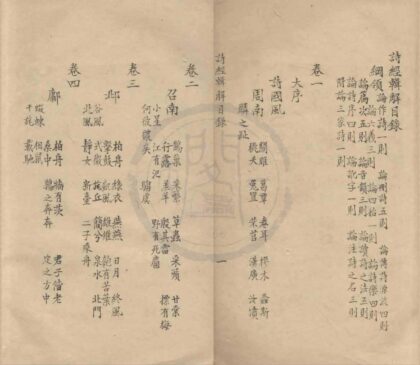 詩經輯解目錄
綱領
論作詩一則 論刪詩五則 論傳詩源流四則
論六義三則 論四始一則 論詩樂四則
論篇次五則 論音韻三則 論讀詩之法五則
論詩序四則 論歌字一則 論注詩之名三則
附論三家詩一則
卷一
大序
詩國風
周南
關雎 葛覃 卷耳 樛木 螽斯
桃夭 兔罝 芣苢 漢廣 汝墳
麟之趾
詩經輯解目錄
一
卷二
召南
鵲巢 采蘩 草蟲 采蘋 甘棠
行露 羔羊 殷其靁 摽有梅
小星 江有汜 野有死麕
何彼襛矣 騶虞
卷三
邶
柏舟 綠衣 燕燕 日月 終風
擊鼓 凱風 雄雉 匏有苦葉
谷風 式微 旄丘 簡兮 泉水 北門
北風 靜女 新臺 二子乘舟
卷四
鄘
柏舟 牆有茨 君子偕老
桑中 鶉之奔奔 定之方中
蝃蝀 相鼠
干旄 載馳